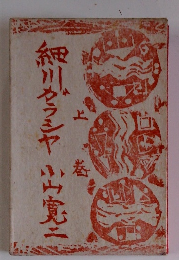 細川ガラシヤ
上巻
小山寛二